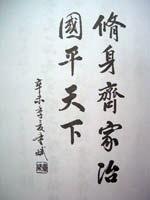 脩身齊家治
國平天下
辛未季夏